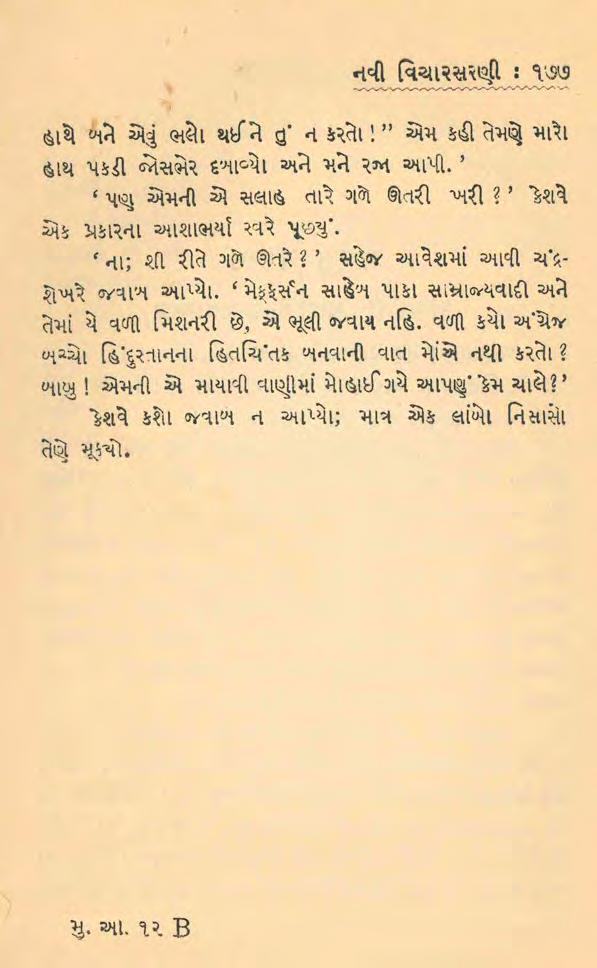 નવી વિચારસરણી : ૧૭૭
હાથે બને એવું ભલો થઈને તું ન કરતો!” એમ કહી તેમણે મારો
હાથ પકડી જોસભેર દબાવ્યો અને મને રજા આપી.’
‘પણ એમની એ સલાહ તારે ગળે ઊતરી ખરી?’ કેશવે
એક પ્રકારના આશાભર્યા સ્વરે પૂછ્યું.
‘ના; શી રીતે ગળે ઊતરે?’ સહેજ આવેશમાં આવી ચંદ્ર-
શેખરે જવાબ આપ્યો. ‘મેકફર્સન સાહેબ પાકા સામ્રાજ્યવાદી અને
તેમાં યે વળી મિશનરી છે, એ ભૂલી જવાય નહિ. વળી કયો અંગ્રેજ
બચ્ચો હિંદુસ્તાનના હિતચિંતક બનવાની વાત મોંએ નથી કરતો?
બાબુ! એમની એ માયાવી વાણીમાં મોહાઈ ગયે આપણું કેમ ચાલે?’
કેશવે કશો જવાબ ન આપ્યો; માત્ર એક લાંબો નિસાસો
તેણે મૂક્યો.
મુ. આ. ૧૨ B